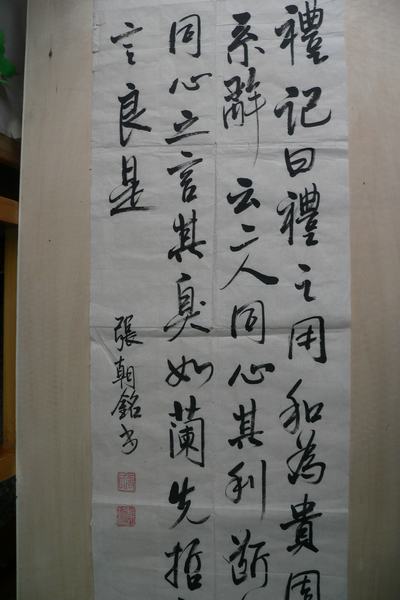 禮記曰禮之用和為貴周
系辭云二人同心其利斷
同心之言其臭如蘭先哲
言良是
張朝銘書